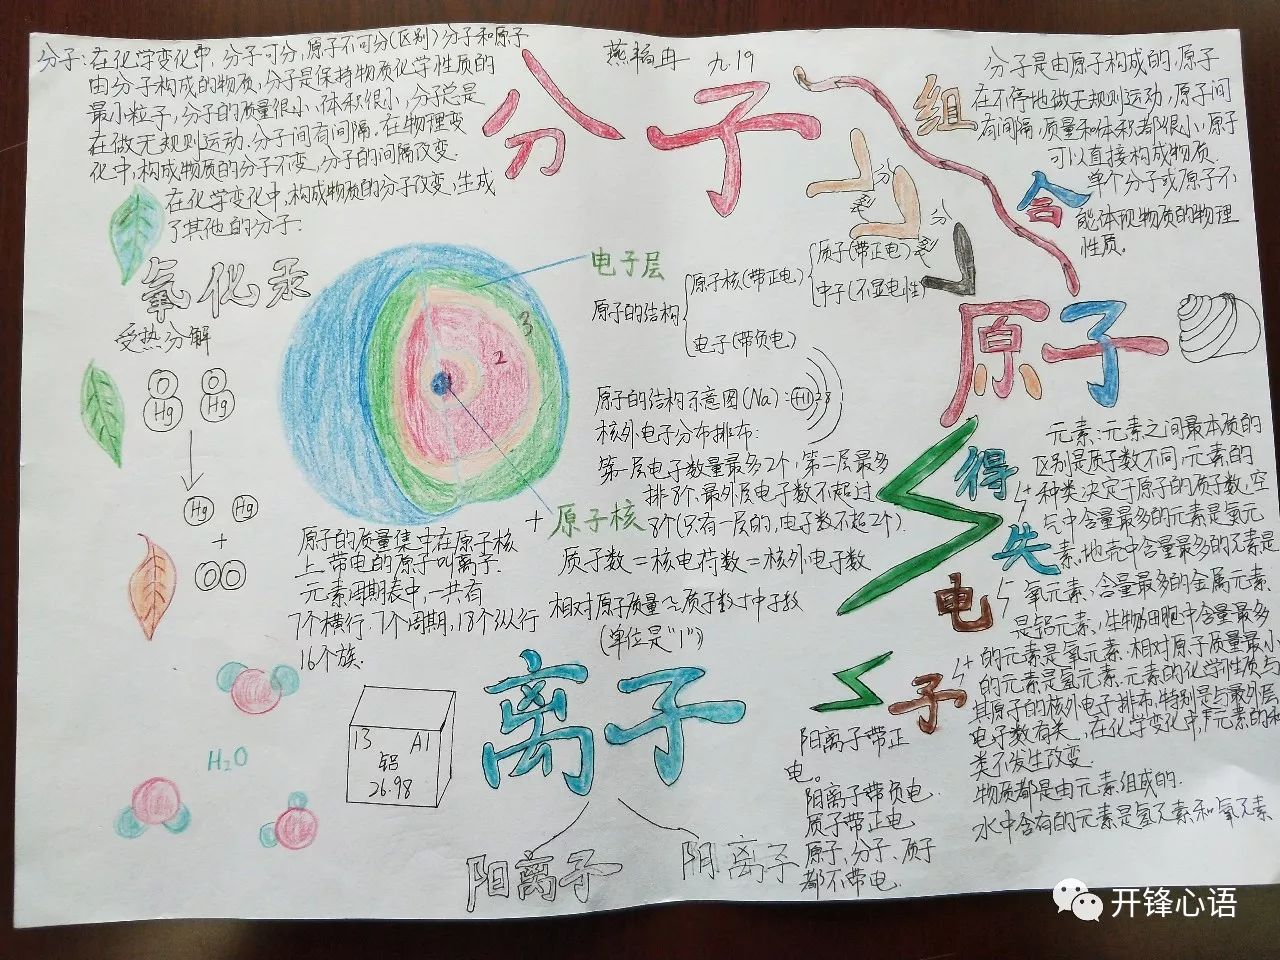 分子：在化学变化中，分子可分，原子不可分(区别)分子和原子
由分子构成的物质，分子是保持物质化学性质的
最小粒子，分子的质量很小、体积很小，分子总是
在做无规则运动.分子间有间隔.在物理变
化中，构成物质的分子不变，分子的间隔改变.
在化学变化中，构成物质的分子改变，生成
了其他的分子.
九.19
分子
组
合
分
裂
分
裂
分子是由原子构成的，原子
在不停地做无规则运动，原子间
有间隔，质量和体积都很小，原子
可以直接构成物质.
单个分子或原子不
能体现物质的物理
性质。
氧化汞
受热分解
O
O
Hg
Hg
Hg
Hg
+
OO
电子层
3
2
1
原子核
+
原子的结构
原子核(带正电)
质子(带正电)
中子(不显电性)
电子(带负电)
原子
原子的结构示意图(Na)：+11 2 8
核外电子分布排布：
第一层电子数量最多2个，第二层最多
排8个.最外层电子数不超过
8个(只有一层的，电子数不超2个)
质子数=核电荷数=核外电子数
相对原子质量≈质子数+中子数
(单位是"1")
原子的质量集中在原子核
上.带电的原子叫离子.
元素周期表中，一共有
7个横行.7个周期，18个纵行
16个族.
得
失
电
子
元素：元素之间最本质的
区别是质子数不同，元素的
种类决定于原子的质子数，空
气中含量最多的元素是氮元
素，地壳中含量最多的元素是
氧元素、含量最多的金属元素
是铝元素，生物细胞中含量最多
的元素是氧元素.相对原子质量最小
的元素是氢元素.元素的化学性质与
其原子的核外电子排布，特别是与最外层
电子数有关，在化学变化中，元素的种
类不发生改变.
物质都是由元素组成的.
水中含有的元素是氢元素和氧元素
H₂O
13 Al
铝
26.98
离子
阳离子
阴离子
阳离子带正
电。
阳离子带负电.
质子带正电
原子、分子、质子
都不带电.
开锋心语